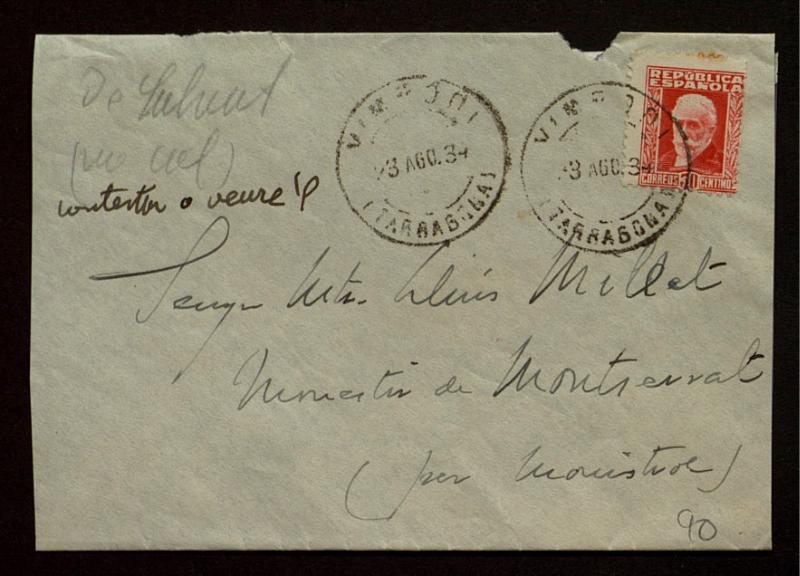 De
contestar o veure'l
VIMBODI
23 AGO.34
(TARRAGONA)
VIMBODI
23 AGO.34
(TARRAGONA)
REPÚBLICA
ESPAÑOLA
CORREOS 30 CENTIMOS
Senyor Mtr. Lluís Millet
Monestir de Montserrat
(per Monistrol)
90